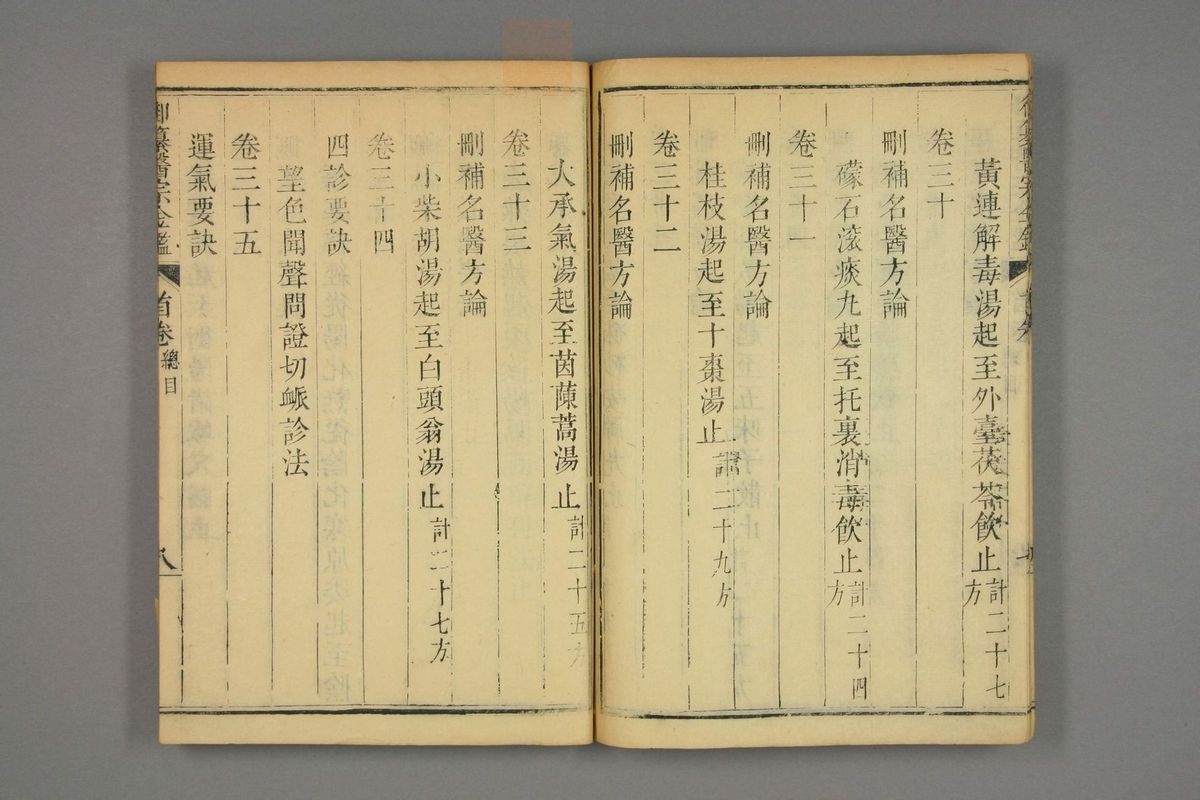 黃連解毒湯起至外臺茯苓飲止計二十七方
卷三十
刪補名醫方論
礞石滾痰丸起至托裏消毒飲止計二十四方
卷三十一
刪補名醫方論
桂枝湯起至十棗湯止計二十九方
卷三十二
刪補名醫方論
大承氣湯起至茵蔯蒿湯止計二十五方
卷三十三
刪補名醫方論
小柴胡湯起至白頭翁湯止計二十七方
卷三十四
四診要訣
望色聞聲問證切脈診法
卷三十五
運氣要訣
御纂醫宗金鑑 首卷 總目 八